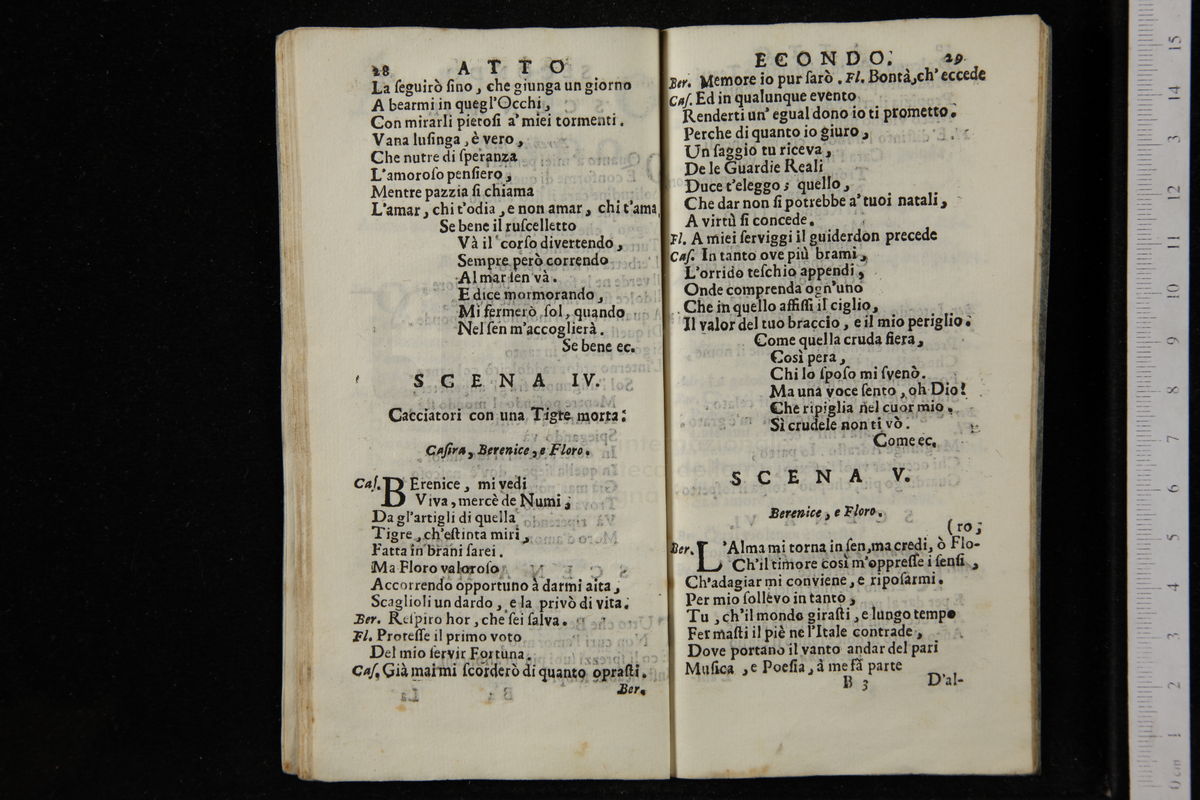 28 ATTO
La ſeguirò ſino, che giunga un giorno
A bearmi in quegl'Occhi,
Con mirarli pietoſi a' miei tormenti.
Vana luſinga, è vero,
Che nutre di ſperanza
L'amoroſo penſiero,
Mentre pazzia ſi chiama
L'amar, chi t'odia, e non amar, chi t'ama
Se bene il ruſcelletto
Và il corſo divertendo,
Sempre però correndo
Al mar ſen và.
E dice mormorando,
Mi fermerò ſol, quando
Nel ſen m'accoglierà.
Se bene ec.
SCENA IV.
Cacciatori con una Tigre morta:
Caſira, Berenice, e Floro.
Caſ. BErenice, mi vedi
Viva, mercè de Numi,
Da gl'artigli di quella
Tigre, ch'eſtinta miri,
Fatta in brani ſarei.
Ma Floro valoroſo
Accorrendo opportuno à darmi aita,
Scaglioli un dardo, e la privò di vita.
Ber. Reſpiro hor, che ſei ſalva.
Fl. Proteſſe il primo voto
Del mio ſervir Fortuna.
Caſ. Già mai mi ſcorderò di quanto opraſti.
Ber.
ECONDO. 29
Ber. Memore io pur ſarò. Fl. Bontà, ch'eccede
Caſ. Ed in qualunque evento
Renderti un' egual dono io ti prometto.
Perche di quanto io giuro,
Un ſaggio tu riceva,
De le Guardie Reali
Duce t'eleggo; quello,
Che dar non ſi potrebbe a' tuoi natali,
A virtù ſi concede.
Fl. A miei ſerviggi il guiderdon precede
Caſ. In tanto ove più brami,
L'orrido teſchio appendi,
Onde comprenda ogn'uno
Che in quello affiſſi il ciglio,
Il valor del tuo braccio, e il mio periglio.
Come quella cruda fiera,
Così pera,
Chi lo ſpoſo mi ſvenò.
Ma una voce ſento, oh Dio!
Che ripiglia nel cuor mio.
Sì crudele non ti vò.
Come ec.
SCENA V.
Berenice, e Floro.
(ro;
Ber. L'Alma mi torna in ſen, ma credi, ò Flo-
Ch'il timore così m'oppreſſe i ſenſi,
Ch'adagiar mi conviene, e ripoſarmi.
Per mio ſollevo in tanto,
Tu, ch'il mondo giraſti, e lungo tempo
Fermaſti il piè ne l'Itale contrade,
Dove portano il vanto andar del pari
Muſica, e Poeſia, à me fà parte
B 3 D'al-
15
14
13
12
11
10
9
8
7
6
5
4
3
2
1
0 cm